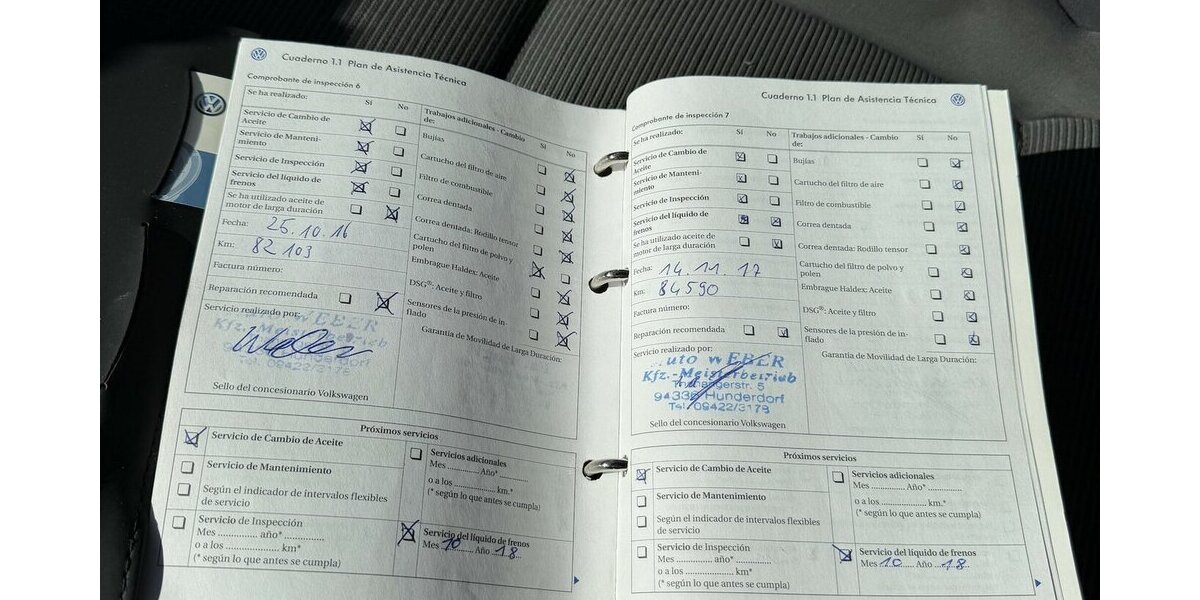 Cuaderno 1.1 Plan de Asistencia Técnica
Comprobante de inspección 6
Se ha realizado: Sí No
Servicio de Cambio de
Aceite
Servicio de Manteni-
miento
Servicio de Inspección
Servicio del líquido de
frenos
Se ha utilizado aceite de
motor de larga duración
Fecha: 25.10.16
Km: 82 103
Factura número:
Reparación recomendada
Servicio realizado por:
WEBER
Kfz.-Meisterbetrieb
Weber
09422/3178
Sello del concesionario Volkswagen
Trabajos adicionales - Cambio Sí No
de:
Bujías
Cartucho del filtro de aire
Filtro de combustible
Correa dentada
Correa dentada: Rodillo tensor
Cartucho del filtro de polvo y
polen
Embrague Haldex: Aceite
DSG®: Aceite y filtro
Sensores de la presión de in-
flado
Garantía de Movilidad de Larga Duración:
Próximos servicios
Servicio de Cambio de Aceite
Servicio de Mantenimiento
Según el indicador de intervalos flexibles
de servicio
Servicio de Inspección
Mes .............. año* ..............
o a los .................... km*
(* según lo que antes se cumpla)
Servicios adicionales
Mes ........... Año* ...........
o a los .................. km.*
(* según lo que antes se cumpla)
Servicio del líquido de frenos
Mes 10 Año 18
Cuaderno 1.1 Plan de Asistencia Técnica
Comprobante de inspección 7
Se ha realizado: Sí No
Servicio de Cambio de
Aceite
Servicio de Manteni-
miento
Servicio de Inspección
Servicio del líquido de
frenos
Se ha utilizado aceite de
motor de larga duración
Fecha: 14.11.17
Km: 84590
Factura número:
Reparación recomendada
Servicio realizado por:
uto WEBER
Kfz.-Meisterbetrieb
5
Hunderdorf
Tel. 09422/3178
Sello del concesionario Volkswagen
Trabajos adicionales - Cambio Sí No
de:
Bujías
Cartucho del filtro de aire
Filtro de combustible
Correa dentada
Correa dentada: Rodillo tensor
Cartucho del filtro de polvo y
polen
Embrague Haldex: Aceite
DSG®: Aceite y filtro
Sensores de la presión de in-
flado
Garantía de Movilidad de Larga Duración:
Próximos servicios
Servicio de Cambio de Aceite
Servicio de Mantenimiento
Según el indicador de intervalos flexibles
de servicio
Servicio de Inspección
Mes .............. año* ..............
o a los .................... km*
(* según lo que antes se cumpla)
Servicios adicionales
Mes ........... Año* ...........
o a los .................. km.*
(* según lo que antes se cumpla)
Servicio del líquido de frenos
Mes 10 Año 18